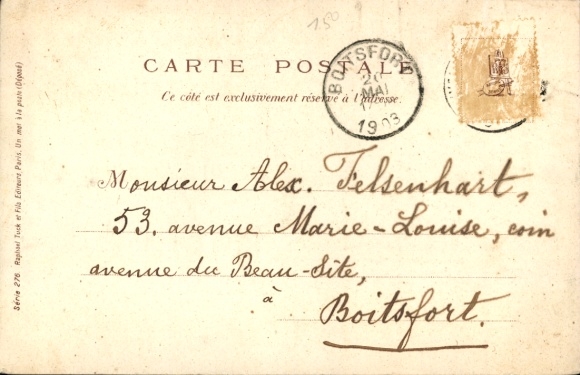 150
CARTE POSTALE
Ce côté est exclusivement réservé à l'adresse.
BOITSFORT
MAI
1903
Monsieur Alex. Felsenhart,
53. avenue Marie-Louise, coin
avenue du Beau-Site,
à
Boitsfort.
Série 276 Raphael Tuck et Fils Editeurs Paris. Un mot à la poste (Déposé)